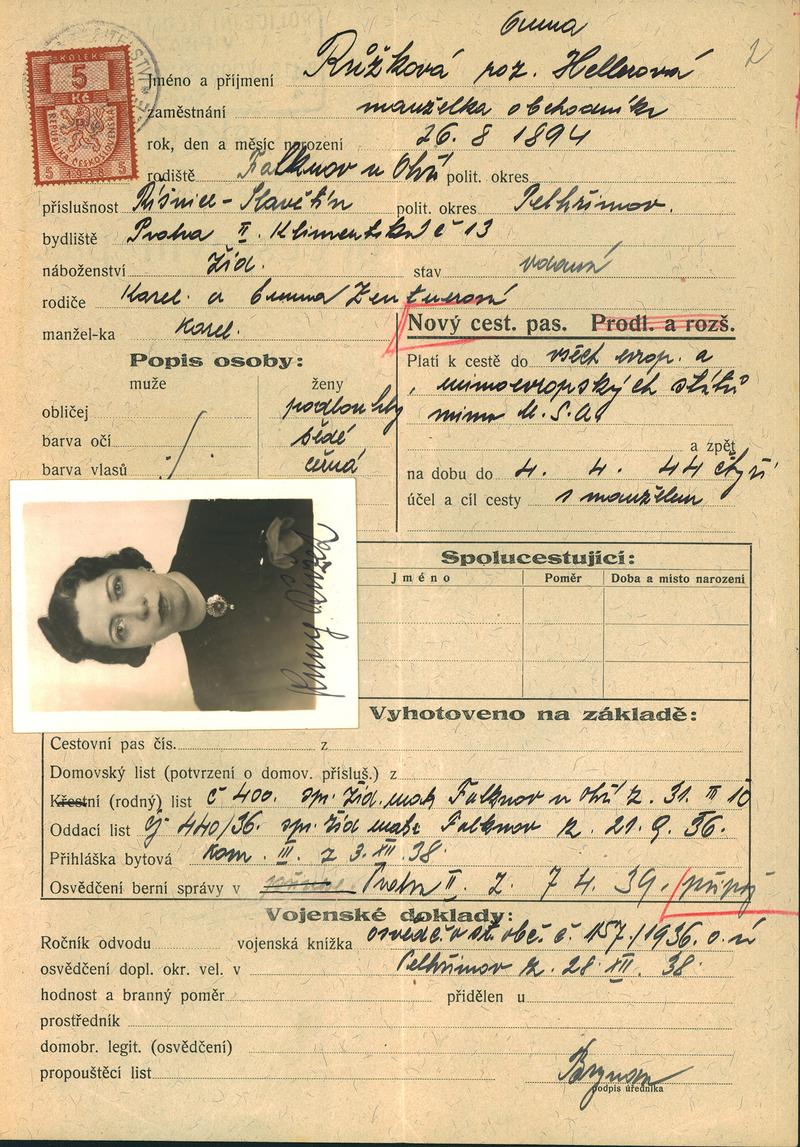 Emma
2
KOLEK
5
Kč
REPUBLIKA ČESKOSLOVENSKÁ
5 1938 5
Jméno a příjmení Růžková roz. Hellerová
zaměstnání manželka obchodníka
rok, den a měsíc narození 26. 8 1894
rodiště Falknov n Ohří polit. okres
příslušnost Slavětín polit. okres Pelhřimov.
bydliště Praha II. Klimentská č 13
náboženství Žid. stav vdaná
rodiče Karel a Emma Zentnerová
manžel-ka Karel.
Nový cest. pas. Prodl. a rozš.
Popis osoby:
muže ženy
obličej podlouhlý
barva očí šedé
barva vlasů černá
Platí k cestě do všech evrop. a
mimoevropských států
mimo U.S.A.
a zpět
na dobu do 4. 4. 44 čtyř
účel a cíl cesty s manželem
Spolucestující:
Jméno Poměr Doba a místo narození
Vyhotoveno na základě:
Cestovní pas čís. z
Domovský list (potvrzení o domov. přísluš.) z
Křestní (rodný) list č 400. spr. žid. mat Falknov n Ohří z. 31. III 10
Oddací list čj 440/36. spr. žid mat. Falknov z. 21. 9. 36.
Přihláška bytová kom. III. z 3. XII. 38.
Osvědčení berní správy v Praha II. z. 7 4. 39.
Vojenské doklady:
Ročník odvodu vojenská knížka osvědč. o st. obč. č 157/1936. o. ú
osvědčení dopl. okr. vel. v Pelhřimov z. 28 XII. 38.
hodnost a branný poměr přidělen u
prostředník
domobr. legit. (osvědčení)
propouštěcí list
podpis úředníka